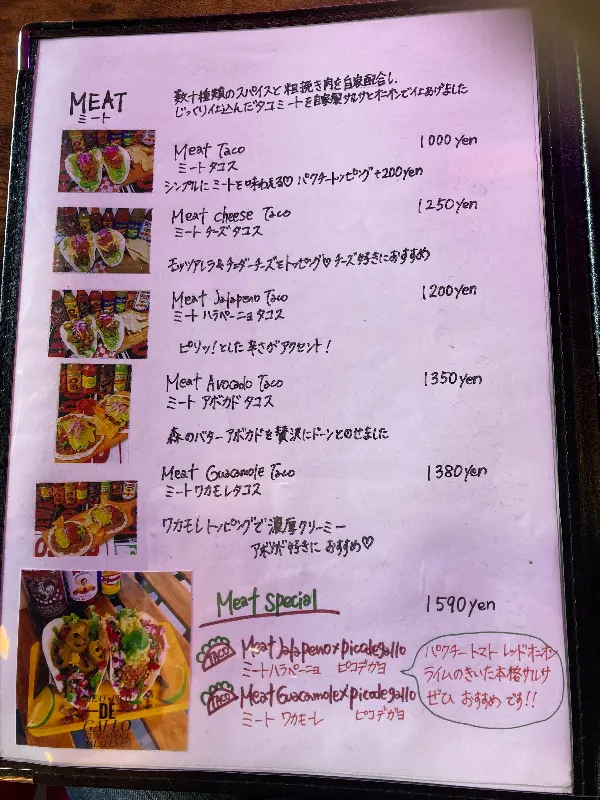 MEAT
ミート
数十種類のスパイスと粗挽き肉を自家配合し、
じっくり仕込んだタコミートを自家製サルサとオニオンで仕上げました
Meat Taco 1000yen
ミートタコス
シンプルにミートを味わえる♡ パクチートッピング+200yen
Meat cheese Taco 1250yen
ミートチーズタコス
モッツァレラ&チェダーチーズをトッピング♡チーズ好きにおすすめ
Meat Jalapeno Taco 1200yen
ミートハラペーニョタコス
ピリッ!とした辛さがアクセント!
Meat Avocado Taco 1350yen
ミート アボカドタコス
森のバターアボカドを贅沢にドーンとのせました
Meat Guacamole Taco 1380yen
ミートワカモレタコス
ワカモレトッピングで濃厚クリーミー
アボカド好きにおすすめ♡
Meat special 1590yen
TACO Meat Jalapeno×picodegallo
ミートハラペーニョ ピコデガヨ
TACO Meat Guacamole×picodegallo
ミート ワカモーレ ピコデガヨ
パクチー トマト レッドオニオン
ライムのきいた本格サルサ
ぜひ おすすめです!!
DE
GALLO
GUACAMOLE
JALAPENEO